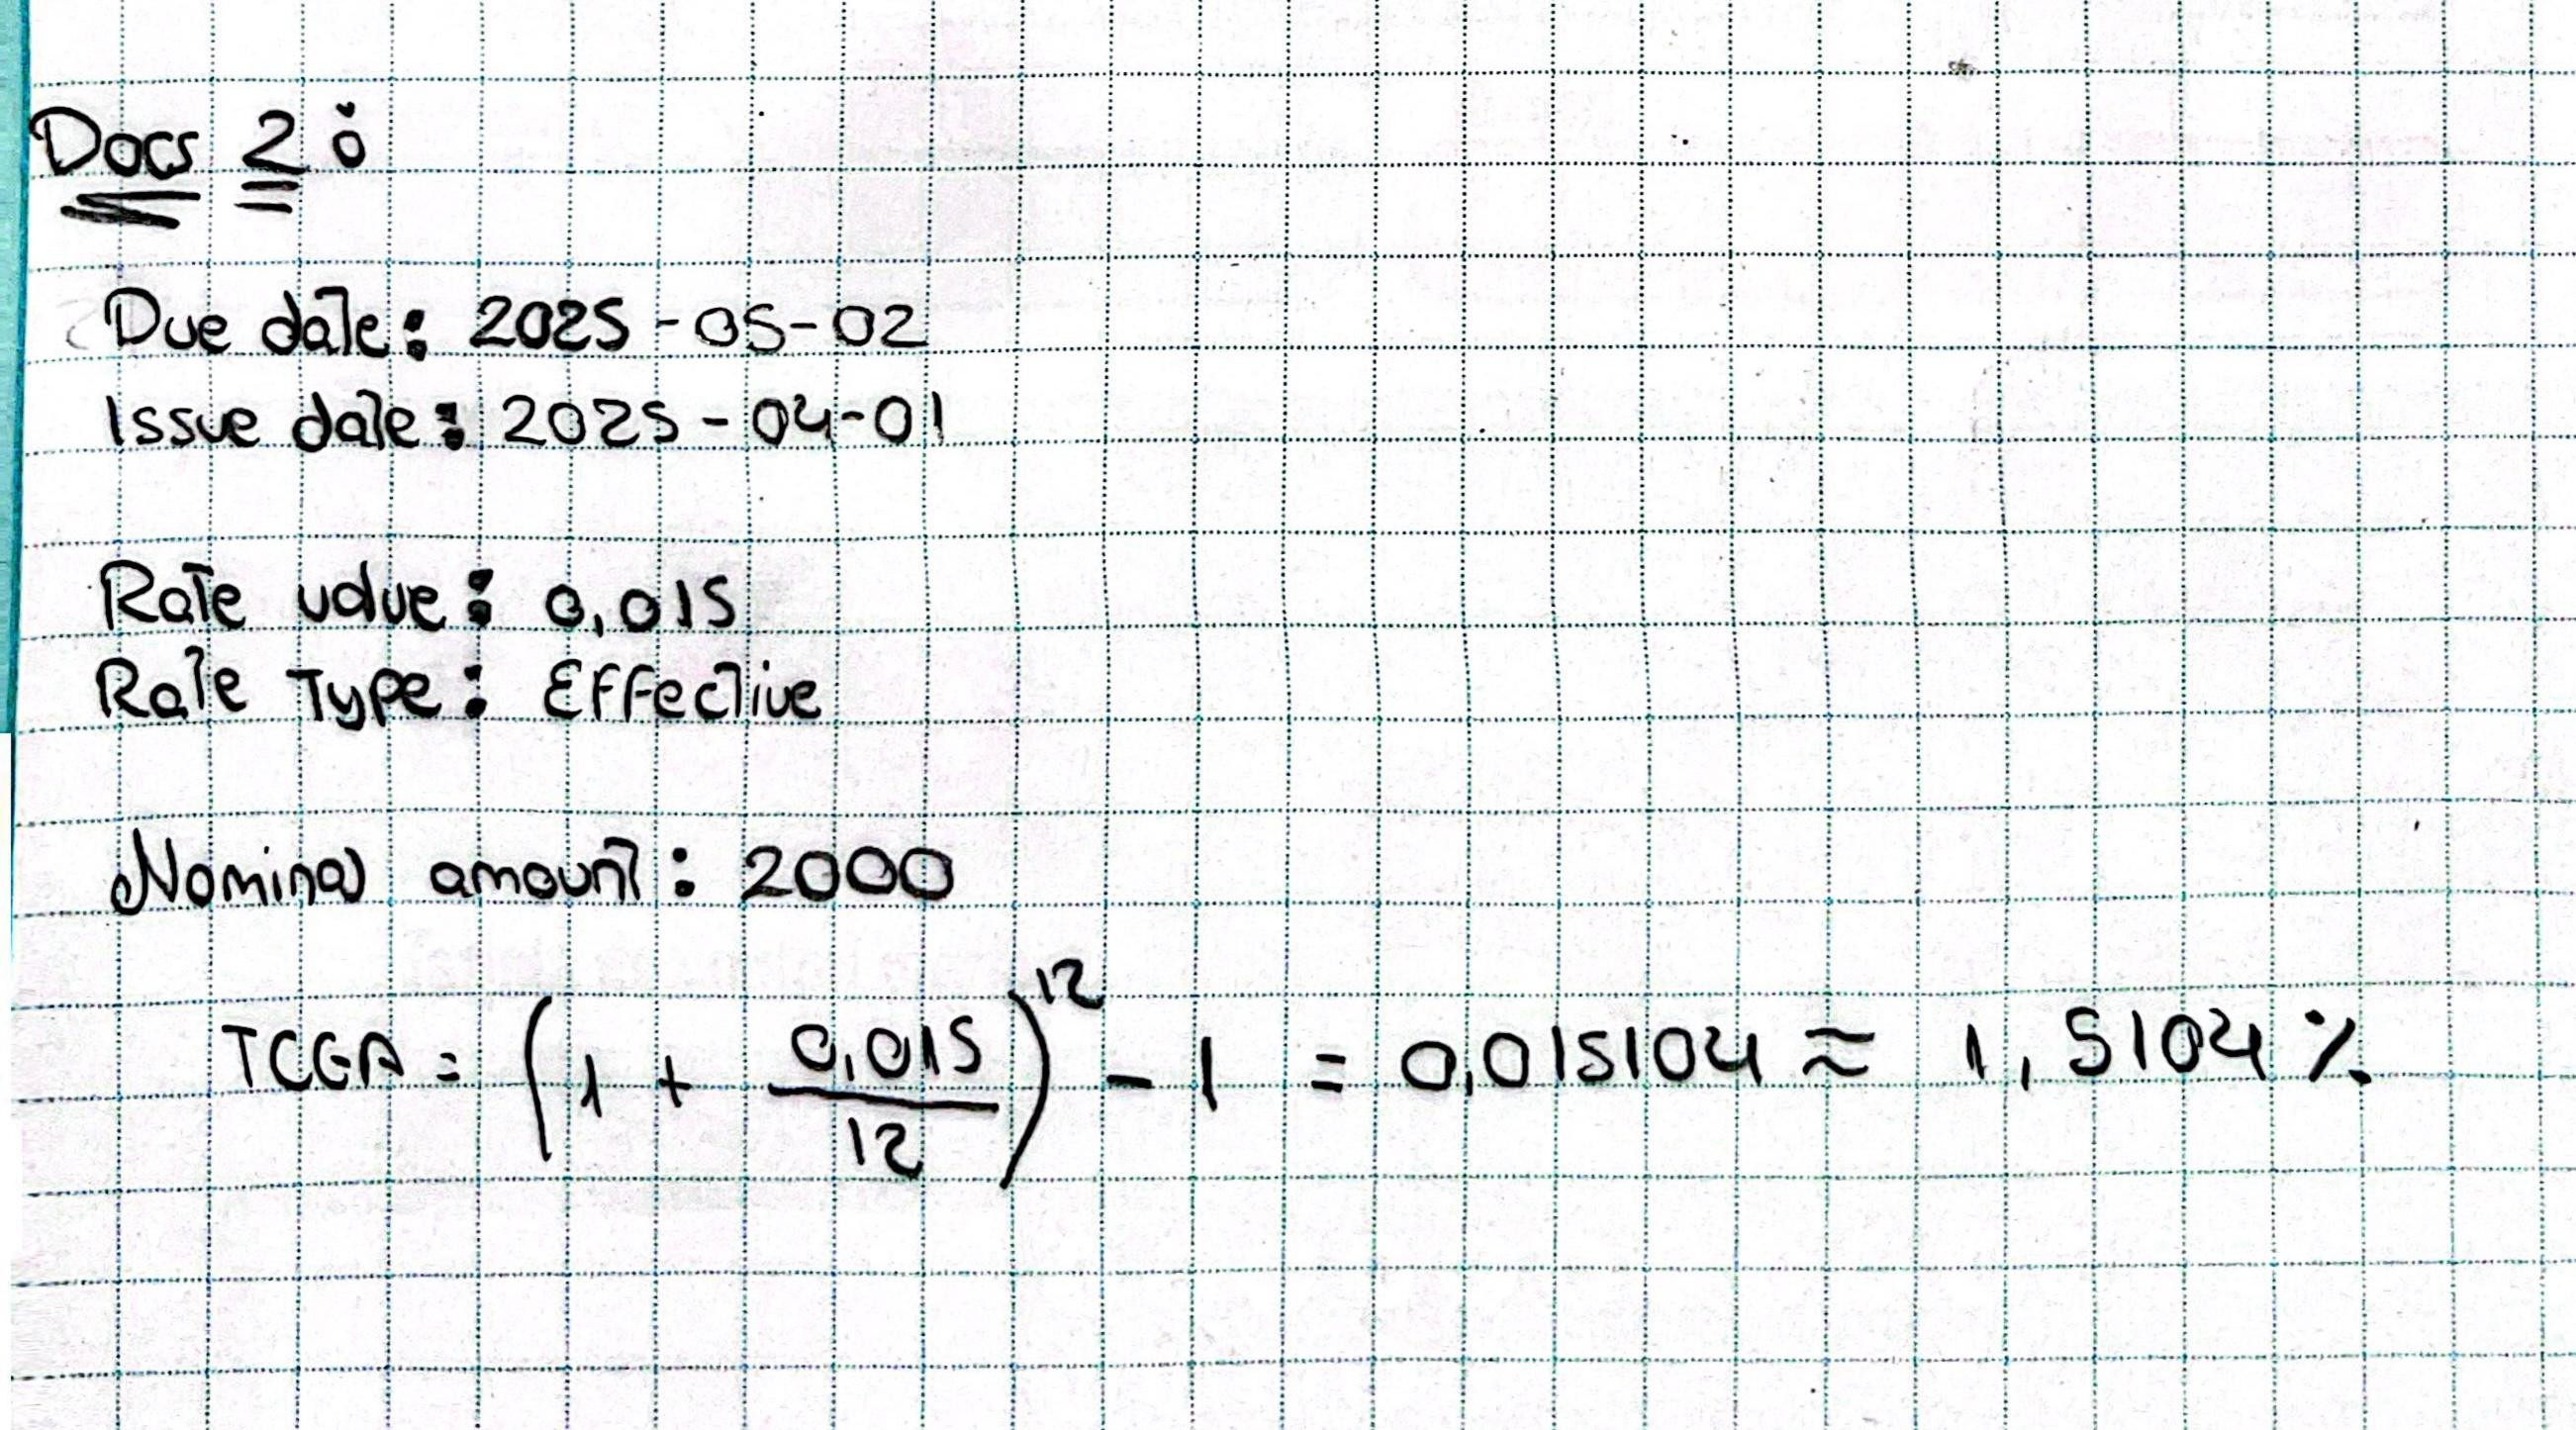 Docs 2:
Due date: 2025-05-02
Issue date: 2025-04-01
Rate value: 0,015
Rate Type: Effective
Nominal amount: 2000
TCEA = (1 + 0,015/12)^12 - 1 = 0,015104 ≈ 1,5104 %